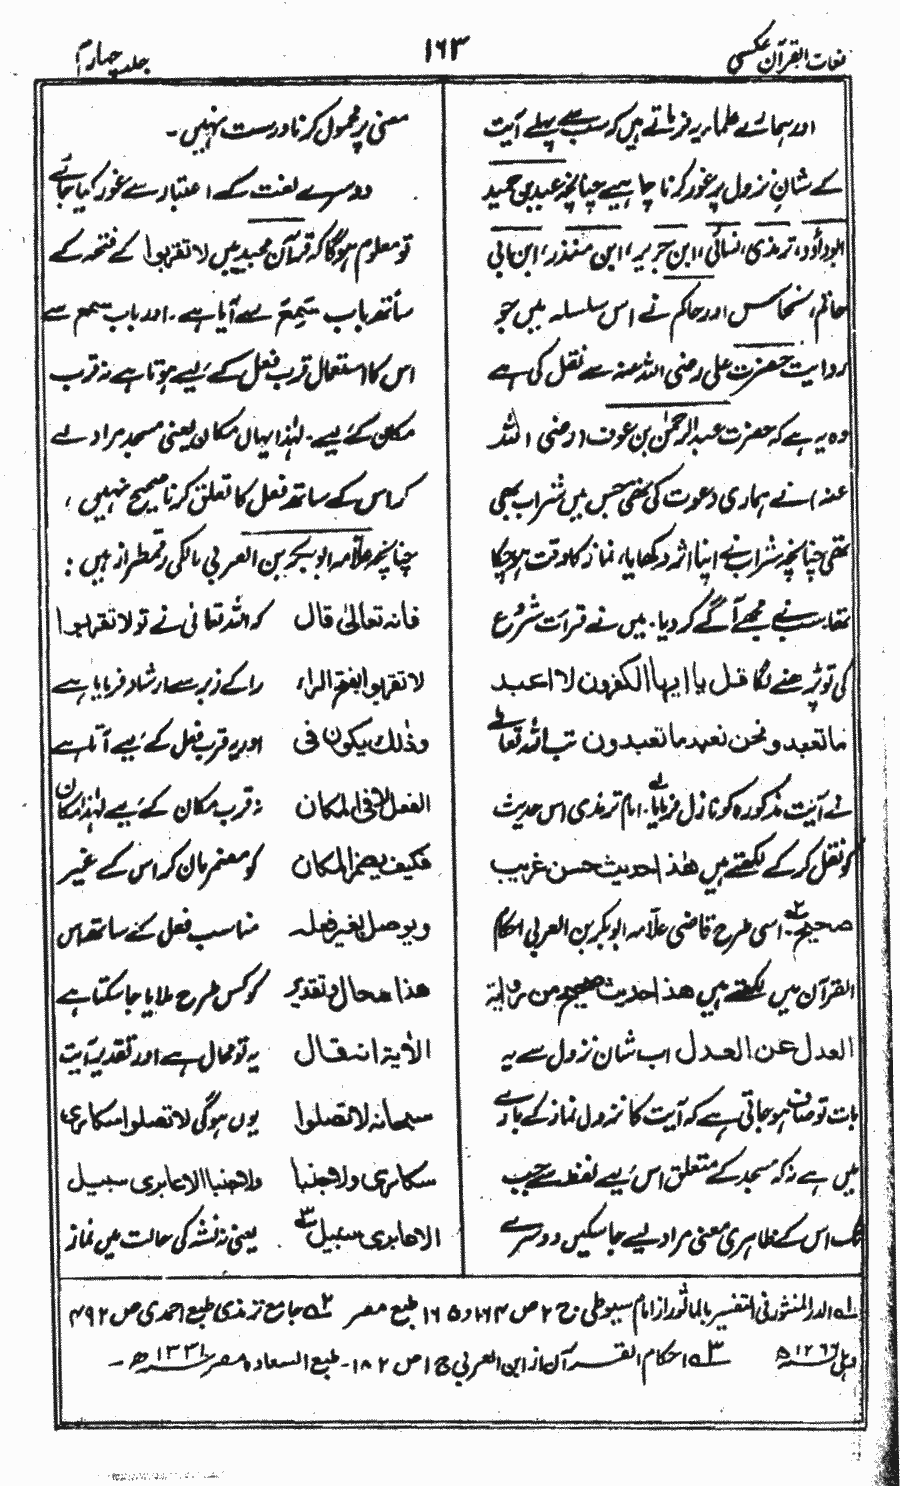 لغات القرآن عکسی
۱۶۳
جلد چہارم
اور ہمارے علماء یہ فرماتے ہیں کہ سب سے پہلے آیت
کے شانِ نزول پر غور کرنا چاہیے چنانچہ عبد بن حمید
ابوداؤد، ترمذی، نسائی، ابن جریر، ابن منذر، ابن ابی
حاتم، نحاس اور حاکم نے اس سلسلہ میں جو
روایت حضرت علی رضی اللہ عنہ سے نقل کی ہے
وہ یہ ہے کہ حضرت عبد الرحمٰن بن عوف (رضی اللہ
عنہ) نے ہماری دعوت کی تھی جس میں شراب بھی
تھی چنانچہ شراب نے اپنا اثر دکھایا، نماز کا وقت ہو چکا
تھا۔ سب نے مجھے آگے کر دیا۔ میں نے قرأت شروع
کی تو پڑھنے لگا قل یا ایہا الکٰفرون لا اعبد
ما تعبدون و نحن نعبد ما تعبدون تب اللہ تعالےٰ
نے آیت مذکورہ کو نازل فرمایا۔ امام ترمذی اس حدیث
کو نقل کر کے لکھتے ہیں ھٰذا حدیث حسن غریب
صحیح۔ اسی طرح قاضی علّامہ ابوبکر بن العربی احکام
القرآن میں لکھتے ہیں ھذا حدیث صحیح من روایة
العدل عن العدل اب شان نزول سے یہ
بات تو صاف ہو جاتی ہے کہ آیت کا نزول نماز کے بارے
میں ہے نہ کہ مسجد کے متعلق اس لیے لفظ سے جب
تک اس کے ظاہری معنی مراد لیے جا سکیں دوسرے
معنی پر محمول کرنا درست نہیں۔
دوسرے لغت کے اعتبار سے غور کیا جائے
تو معلوم ہوگا کہ قرآن مجید میں لا تقربوا کے فتحہ کے
ساتھ باب سَمِعَ سے آیا ہے۔ اور باب سمع سے
اس کا استعمال قرب فعل کے لیے ہوتا ہے نہ قرب
مکان کے لیے۔ لہٰذا یہاں مکان یعنی مسجد مراد لے
کر اس کے ساتھ فعل کا تعلق کرنا صحیح نہیں،
چنانچہ علّامہ ابوبکر بن العربی مالکی رقمطراز ہیں :
فانہ تعالیٰ قال کہ اللہ تعالیٰ نے تو لا تقربوا
لا تقربوا بفتح الراء را کے زبر سے ارشاد فرمایا ہے
وذٰلک یکون فی اور یہ قرب فعل کے لیے آتا ہے
الفعل لا فی المکان نہ قرب مکان کے لیے لہٰذا مکان
فکیف یضمر المکان کو مضمر مان کر اس کے غیر
ویوصل بغیر فعلہ مناسب فعل کے ساتھ اس
ھذا محال وتقدیر کو کس طرح ملایا جا سکتا ہے
الاٰیة انہ قال یہ تو محال ہے اور تقدیر آیت
سبحانہ لا تصلوا یوں ہوگی لا تصلوا سکاریٰ
سکاریٰ ولا جنبا ولا جنبا الا عابری سبیل
الا عابری سبیل ۳ یعنی نہ نشہ کی حالت میں نماز
۱ الدر المنثور فی التفسیر بالماثور از امام سیوطی ج ۲ ص ۱۶۴ و ۱۶۵ طبع مصر ۲ جامع ترمذی طبع احمدی ص ۴۹۲
دہلی ۱۲۶۶ھ ۳ احکام القرآن از ابن العربی ج ۱ ص ۱۸۲۔ طبع السعادہ مصر ۱۳۳۱ھ ۔